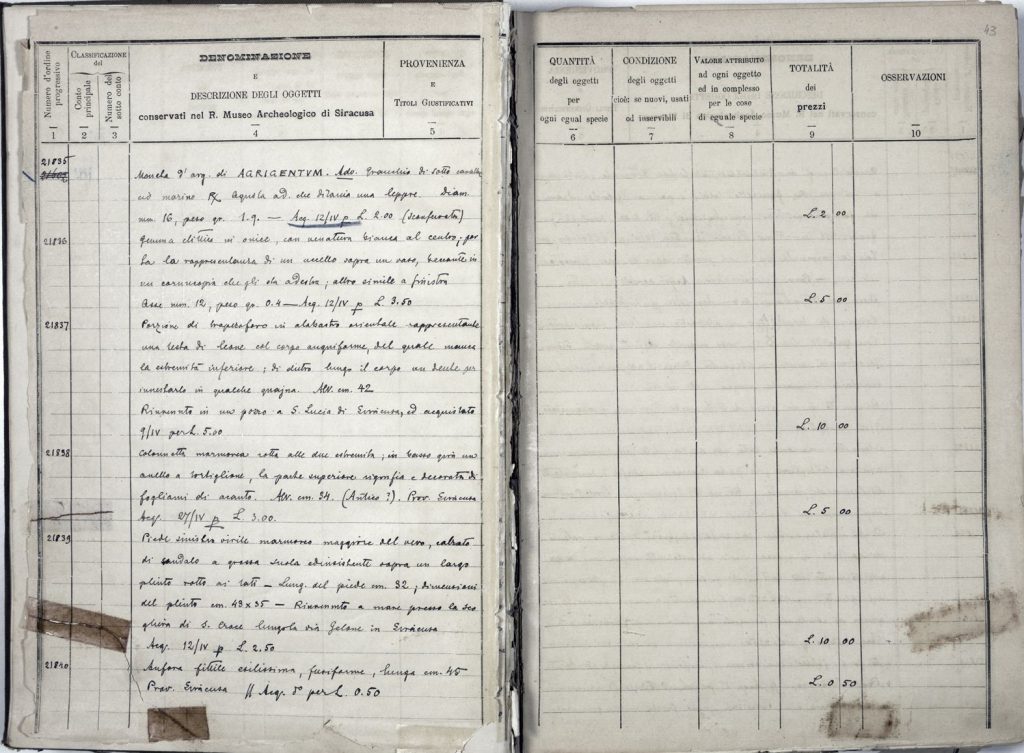 43
Numero d'ordine progressivo
1
CLASSIFICAZIONE del
Conto principale
2
Numero del sotto conto
3
DENOMINAZIONE
E
DESCRIZIONE DEGLI OGGETTI
conservati nel R. Museo Archeologico di Siracusa
4
PROVENIENZA
E
TITOLI GIUSTIFICATIVI
5
QUANTITÀ
degli oggetti
per
ogni egual specie
6
CONDIZIONE
degli oggetti
cioè: se nuovi, usati
od inservibili
7
VALORE ATTRIBUITO
ad ogni oggetto
ed in complesso
per le cose
di eguale specie
8
TOTALITÀ
dei
prezzi
9
OSSERVAZIONI
10
21835
Moneta d'arg. di AGRIGENTVM. Ado. Granchio di sotto cavallo
marino ℞ Aquila ad. che dilania una leppre. Diam.
mm. 16, peso gr. 1.9. — Acq. 12/IV p L. 2.00
L. 2 00
21836
Gemma elittica in onice, con venatura bianca al centro; por
ta la rappresentanza di un uccello sopra un vaso, beccante in
un cornucopia che gli sta a destra; altro simile a sinistra
Asse mm. 12, peso gr. 0.4 — Acq. 12/IV p L. 3.50
L. 5 00
21837
Porzione di trapezoforo in alabastro orientale rappresentante
una testa di leone col corpo anguiforme, del quale manca
la estremità inferiore; di dietro lungo il corpo un dente per
innestarlo in qualche guajna. Alt. cm. 42
Rinvenuto in un pozzo a S. Lucia di Siracusa, ed acquistato
9/IV per L. 5.00
L. 10 00
21838
Colonnetta marmorea rotta alle due estremità; in basso gira un
anello a tortiglione, la parte superiore è decorata di
fogliami di acanto. Alt. cm. 34. (Antico?). Prov. Siracusa
Acq. 27/IV p L. 3.00.
L. 5 00
21839
Piede sinistro virile marmoreo maggiore del vero, calzato
di sandalo a grossa suola ed insistente sopra un largo
plinto rotto ai lati — Lung. del piede cm. 32; dimensioni
del plinto cm. 43 x 35 — Rinvenuto a mare presso la sco
gliera di S. Croce lungo la via Gelone in Siracusa
Acq. 12/IV p L. 2.50
L. 10 00
21840
Anfora fittile esilissima, fusiforme, lunga cm. 45
Prov. Siracusa // Acq. d° per L. 0.50
L. 0 50